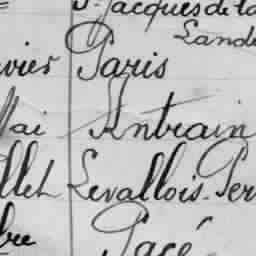 St Jacques de la
Lande
vier Paris
Mai Antrain
llet Levallois-Per
bre Pacé